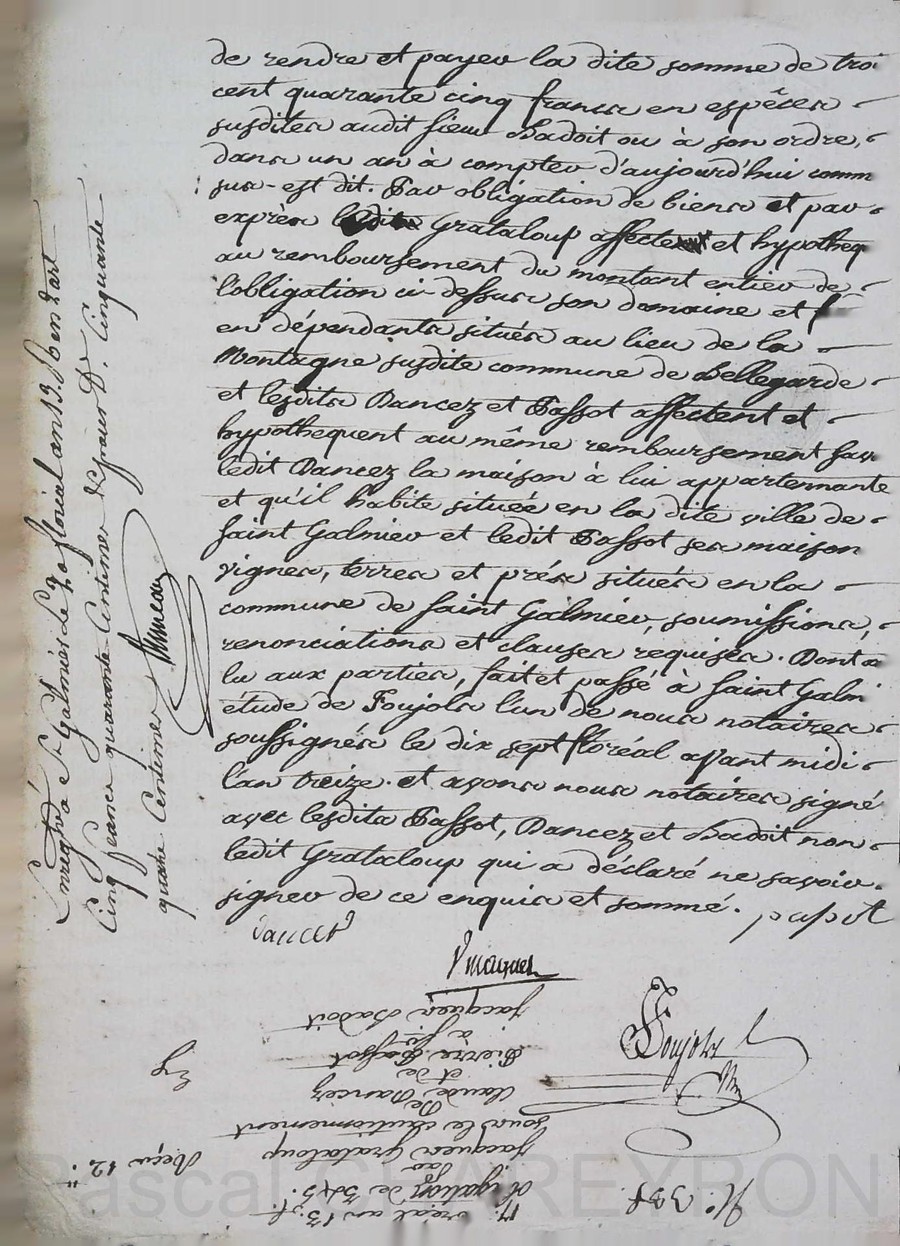 de rendre et payer la dite somme de troi
cent quarante cinq francs en espèces
susdites audit sieur Badoit ou à son ordre,
dans un an à compter d'aujourd'hui comm
sus-est dit. Par obligation de biens et par
exprès Grataloup affecte et hypotheq
au remboursement du montant entier de
l'obligation ci-dessus son domaine et
en dépendants situés au lieu de la
Montagne susdite commune de Bellegarde
et lesdits Dancez et Passot affectent et
hypothequent au même remboursement sav
ledit Dancez la maison à lui appartennante
et qu'il habite située en la dite ville de
saint Galmier et ledit Passot ses maison
vignes, terres et prés situés en la
commune de saint Galmier, soumissions,
renonciations et clauses requises. Dont a
lu aux parties, fait et passé à saint Galmi
étude de Poujols l'un de nous notaires
soussignés le dix sept floréal avant midi
l'an treize. et avons nous notaires signé
avec lesdits Passot, Dancez et Badoit non
ledit Grataloup qui a déclaré ne savoir
signer de ce enquis et sommé. papot
dancer
Poujols
Enregistré a St Galmier le 20 floréal an 13.
cinq francs quarante centimes cinquante
quatre Centimes
N.° 338
17. oréal an 13.
obligation de 345 f.
par
Jacques Grataloup
sous le cautionnement
De
Claude Dancez
et de
Pierre Passot
a Sr.
Jacques Badoit
Reçu 12 f.
Pascal CHAREYRON